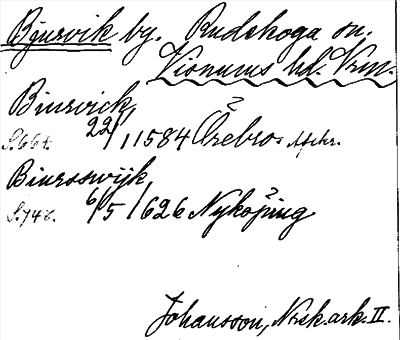 Bjurvik by. Rudskoga sn.
Visnums hd. Vrm.
Biurvick
S. 664. 22/1 1584 Örebro Afskr.
Biuroswijk
S. 748. 6/5 1626 Nyköping
Johansson, Norsk. ark. II.